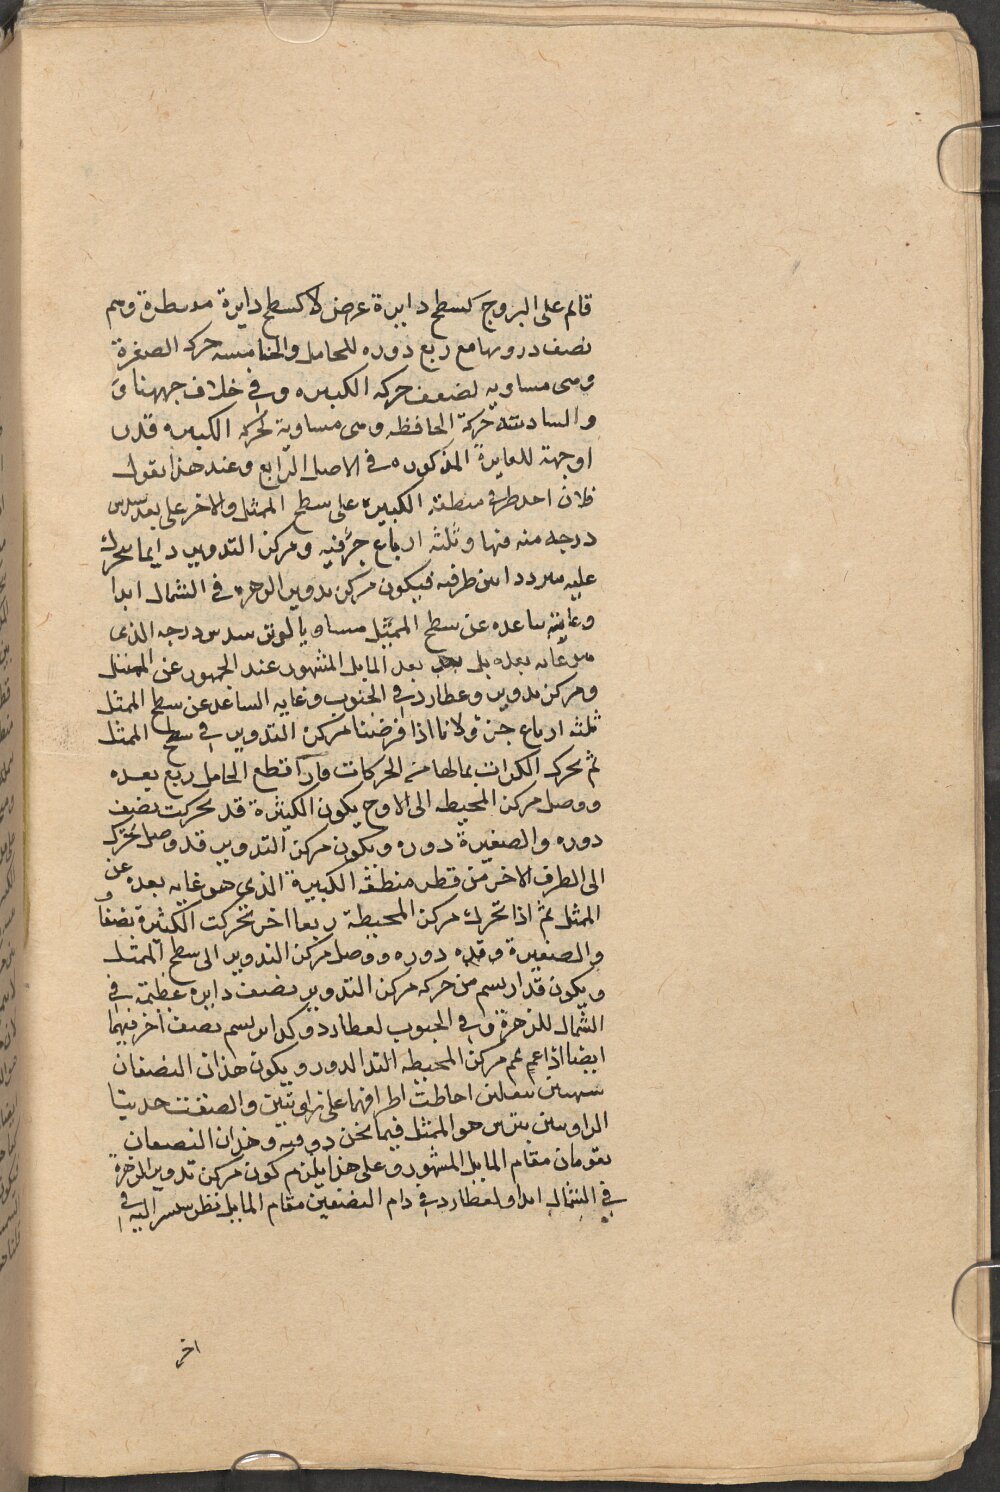 قائم على البروج كسطح دايرة عرض لا كسطح دايرة مسطرة وسم
نصف دورتها مع ربع دوره للحامل والخامسه حركة الصغرة
وهى مساويه لضعف حركه الكبيره وفي خلاف جهتها و
والسادسة حركة الحافظه وهى مساوية لحركه الكبيره قدرا
او جهة للمايرة المذكوره في الاصل الرابع وعند هذا نقول
فلان احد طرفى منطقه الكبيره على سطح الممثل والاخر على بعد سدس
درجه منه فيها وثلثه ارباع جزء فيه ومركز التدوير دايما يتحرك
عليه متردد ابين طرفيه فيكون مركز تدوير الزهره في الشمال ابدا
وغاية تباعده عن سطح الممثل مساويا لكون سدس درجه الذى
هو غايه بعده بل بعد المايل المشهور عند الجمهور عن الممثل
ومركز تدوير وعطارد في الجنوب وغايه التباعد عن سطح الممثل
ثلثه ارباع جزء ولانا اذا فرضنا مركز التدوير في سطح الممثل
ثم تحرك الكرات بمالها من الحركات فاذا قطع الحامل ربع بعده
ووصل مركز المحيطه الى الاوج يكون الكبيرة قد تحركت نصف
دوره والصغيرة دوره ويكون مركز التدوير قد وصل تحرك
الى الطرف الاخر من قطر منطقه الكبيرة الذى هو غايه بعده عن
الممثل ثم اذا تحرك مركز المحيطة ربعا اخر تحركت الكبيرة نصفا و
والصغيرة وقده دوره ووصل مركز التدوير الى سطح الممثل
ويكون قد ارتسم من حركه مركز التدوير نصف دايره عظيمة في
الشمال للزهرة وفي الجنوب لعطارد وكذا يرتسم نصف اخر فيهما
ايضا اذا عم عم مركز المحيطه الدور ويكون هذان النصفان
احاطت اطرافهما على زاويتين والصنفت حديتا
الزاويتين نحو الممثل فيما نحن دوفيه وهذان النصفان
يقومان مقام المايل المشهور وعلى هذا يلزم كون مركز تدوير الزهرة
في الشمال ابدا ولعطارد في دام النصفين مقام المايل نظر سنشير اليه في
اخر